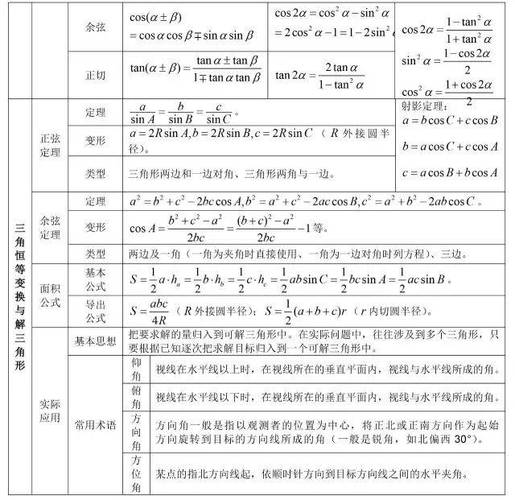 余弦
cos(α±β)
=cosαcosβ∓sinαsinβ
cos2α=cos²α−sin²α
=2cos²α−1=1−2sin²α
cos2α=(1−tan²α)/(1+tan²α)
sin²α=(1−cos2α)/2
cos²α=(1+cos2α)/2
正切
tan(α±β)=(tanα±tanβ)/(1∓tanαtanβ)
tan2α=2tanα/(1−tan²α)
三角恒等变换与解三角形
正弦定理
定理
a/sinA=b/sinB=c/sinC。
射影定理:
a=bcosC+ccosB
b=acosC+ccosA
c=acosB+bcosA
变形
a=2RsinA,b=2RsinB,c=2RsinC (R外接圆半
径)。
类型
三角形两边和一边对角、三角形两角与一边。
余弦定理
定理
a²=b²+c²−2bccosA,b²=a²+c²−2accosB,c²=a²+b²−2abcosC。
变形
cosA=(b²+c²−a²)/2bc=((b+c)²−a²)/2bc−1等。
类型
两边及一角(一角为夹角时直接使用、一角为一边对角时列方程)、三边。
面积公式
基本公式
S=1/2a·hₐ=1/2b·h_b=1/2c·h_c=1/2absinC=1/2bcsinA=1/2acsinB。
导出公式
S=abc/4R(R外接圆半径);S=1/2(a+b+c)r(r内切圆半径)。
实际应用
基本思想
把要求解的量归入到可解三角形中。在实际问题中,往往涉及到多个三角形,只
要根据已知逐次把求解目标归入到一个可解三角形中。
常用术语
仰角
视线在水平线以上时,在视线所在的垂直平面内,视线与水平线所成的角。
俯角
视线在水平线以下时,在视线所在的垂直平面内,视线与水平线所成的角。
方向角
方向角一般是指以观测者的位置为中心,将正北或正南方向作为起始
方向旋转到目标的方向线所成的角(一般是锐角,如北偏西30°)。
方位角
某点的指北方向线起,依顺时针方向到目标方向线之间的水平夹角。